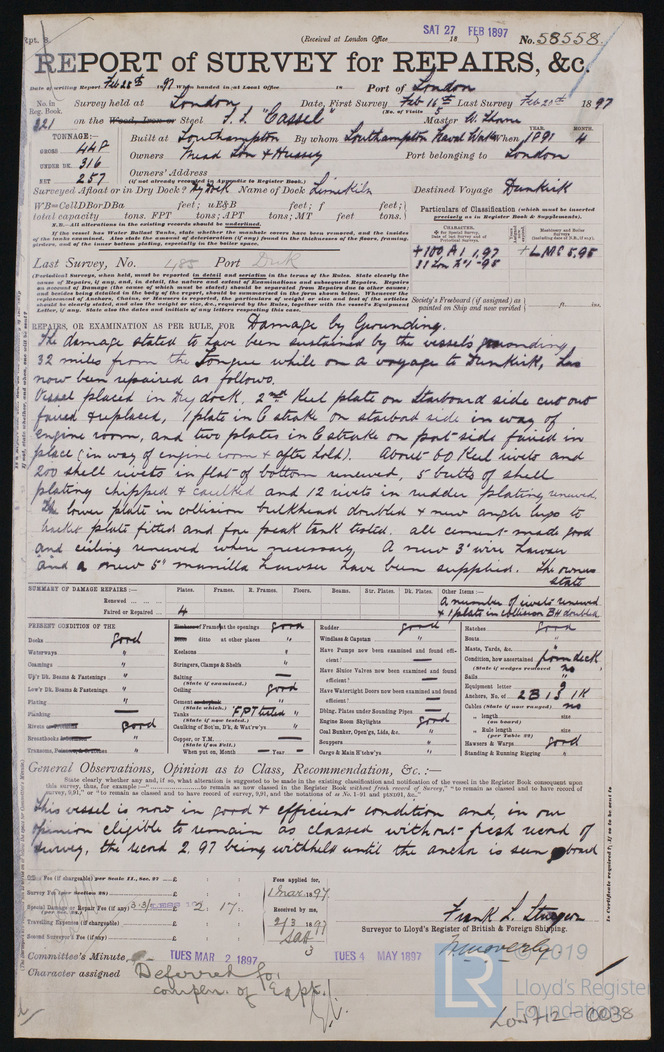 Rpt. 8.
(Received at London Office SAT 27 FEB 1897 18 )
No. 58558
REPORT of SURVEY for REPAIRS, &c.
Date of writing Report Feb 25th 1897 When handed in at Local Office 18 Port of London
No. in Reg. Book. Survey held at London Date, First Survey Feb 16th Last Survey Feb 20th 1897
(No. of Visits 5
321 on the Wood, Iron or Steel S.S. "Cassel" Master W. Thorne
TONNAGE:— YEAR. MONTH.
GROSS 448 Built at Southampton By whom Southampton Naval Works When 1891 4
UNDER DK. 316 Owners Mead Son & Hussey Port belonging to London
NET 257 Owners' Address
(if not already recorded in Appendix to Register Book.)
Surveyed Afloat or in Dry Dock? Dry Dock Name of Dock Limekiln Destined Voyage Dunkirk
WB=CellDBorDBa feet; uE&B feet; f feet;
total capacity tons. FPT tons; APT tons; MT feet tons.
N.B.—All alterations in the existing records should be underlined.
If the vessel has Water Ballast Tanks, state whether the manhole covers have been removed, and the insides of the tanks examined. Also state the amount of deterioration (if any) found in the thicknesses of the floors, framing, girders, and of the inner bottom plating, especially in the boiler space.
Particulars of Classification (which must be inserted precisely as in Register Book & Supplements).
CHARACTER.
+100 A1 1,97
+LMC 5,95
Last Survey, No. 485 Port Dnk
(Periodical Surveys, when held, must be reported in detail and seriatim in the terms of the Rules. State clearly the cause of Repairs, if any, and, in detail, the nature and extent of Examinations and subsequent Repairs. Repairs on account of Damage (the cause of which must be stated) should be separated from Repairs due to other causes;
Society's Freeboard (if assigned) as painted on Ship and now verified ft. ins.
REPAIRS, OR EXAMINATION AS PER RULE, FOR Damage by Grounding.
The damage stated to have been sustained by the vessels grounding
32 miles from the Tongue while on a voyage to Dunkirk, has
now been repaired as follows.
Vessel placed in Dry dock. 2nd Keel plate on Starboard side cut out
faired & replaced, 1 plate in C strake on starboard side in way of
engine room, and two plates in C strake on port side faired in
place (in way of engine room & after hold). About 60 Keel rivets and
200 shell rivets in flat of bottom renewed, 5 butts of shell
plating chipped & caulked and 12 rivets in rudder plating renewed
The lower plate in collision bulkhead doubled & new angle lugs to
bracket plate fitted and fore peak tank tested. all cement made good
and ceiling renewed where necessary. A new 3" wire hawser
and a new 5" manilla hawser have been supplied. The owners
state
SUMMARY OF DAMAGE REPAIRS:— Plates. Frames. R. Frames. Floors. Beams. Str. Plates. Dk. Plates. Other Items:—
Renewed
Faired or Repaired 4
a number of rivets renewed
& 1 plate in collision BH doubled
PRESENT CONDITION OF THE
Decks good
Waterways "
Coamings "
Up'r Dk. Beams & Fastenings "
Low'r Dk. Beams & Fastenings "
Plating "
Planking —
Rivets good
Frames at the openings good
ditto at other places "
Keelsons "
Stringers, Clamps & Shelfs "
Salting —
(State if examined.)
Ceiling good
Cement "
(State which.)
Tanks FPT tested "
(State if now tested.)
Caulking of Bot'm, Dk., & Wat'rw'ys
Copper, or Y.M.
(State if on Felt.)
When put on, Month — Year —
Rudder good
Windlass & Capstan "
Have Pumps now been examined and found efficient?
Have Sluice Valves now been examined and found efficient?
Have Watertight Doors now been examined and found efficient?
Dbling. Plates under Sounding Pipes —
Engine Room Skylights good
Coal Bunker, Open'gs, Lids, &c. "
Scuppers "
Cargo & Main H'tchw'ys "
Hatches good
Boats "
Masts, Yards, &c. "
Condition, how ascertained from deck
(State if wedges removed) no
Sails "
Equipment letter g
Anchors, No. of 2B 1S 1K
Cables (State if now ranged) no
" length (on board) size
" Rule length (per Table 22) size
Hawsers & Warps good
Standing & Running Rigging "
General Observations, Opinion as to Class, Recommendation, &c. :—
State clearly whether any and, if so, what alteration is suggested to be made in the existing classification and notification of the vessel in the Register Book consequent upon
This vessel is now in good & efficient condition and, in our
opinion eligible to remain as classed without fresh record of
survey, the record 2,97 being withheld until the anchor is seen on board
Office Fee (if chargeable) per Scale II., Sec. 27 £ : : Fees applied for,
Survey Fee (per Section 28) £ : : 1 Mar. 1897.
Special Damage or Repair Fee (if any) 3.3/ £ 2 : 17 : Received by me,
Travelling Expenses (if chargeable) £ : : 2/3 1897
Second Surveyor's Fee (if any) £ : :
Frank L. Sturgeon
Surveyor to Lloyd's Register of British & Foreign Shipping.
Committee's Minute TUES MAR 2 1897 TUES 4 MAY 1897
Character assigned Deferred for
complen. of Eqpt.
© 2019
LR
Lloyd's Register
Foundation
LON712-0038